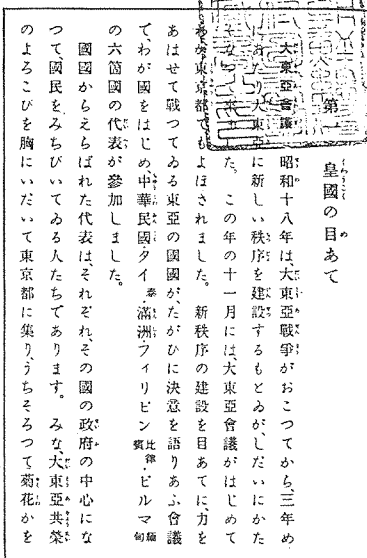 第一 皇國の目あて
一 大東亞會議 昭和十八年は、大東亞戰爭がおこつてから、三年め
にあたり、大東亞に新しい秩序を建設するもとゐが、しだいにかた
つて來ました。 この年の十一月には、大東亞會議がはじめて
わが東京都でもよほされました。 新秩序の建設を目あてに、力を
あはせて戰つてゐる東亞の國國が、たがひに決意を語りあふ會議
で、わが國をはじめ、中華民國・タイ泰・滿洲・フィリピン比律賓・ビルマ緬甸
の六箇國の代表が參加しました。
國國からえらばれた代表は、それぞれ、その國の政府の中心にな
つて國民をみちびいてゐる人たちであります。 みな、大東亞共榮
のよろこびを胸にいだいて東京都に集り、うちそろつて菊花かを